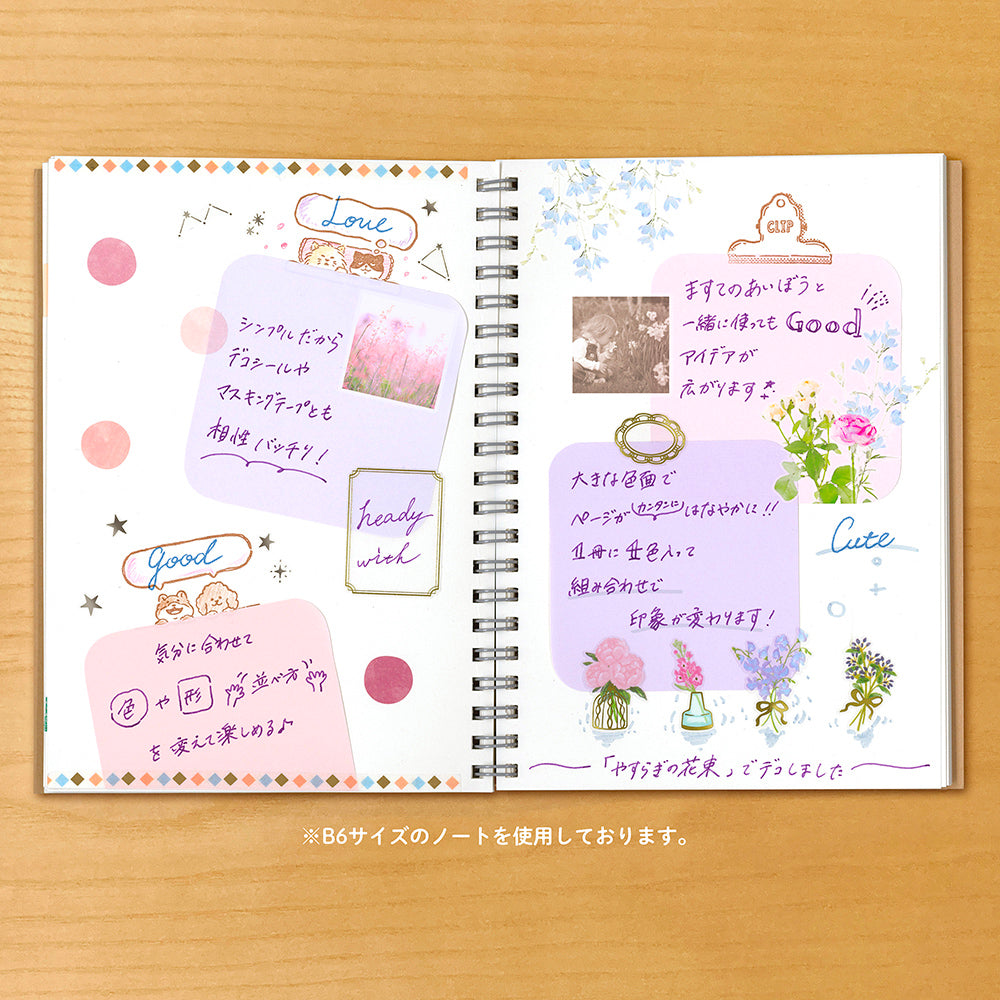 Love
シンプルだから
デコシールや
マスキングテープとも
相性バッチリ!
heady
with
good
気分に合わせて
色や形並べ方
を変えて楽しめる♪
CLIP
ますてのあいぼうと
一緒に使ってもGood
アイデアが
広がります
大きな色面で
ページがカンタンにはなやかに!!
1冊に4色入って
組み合わせで
印象が変わります!
Cute
「やすらぎの花束」でデコしました
※B6サイズのノートを使用しております。